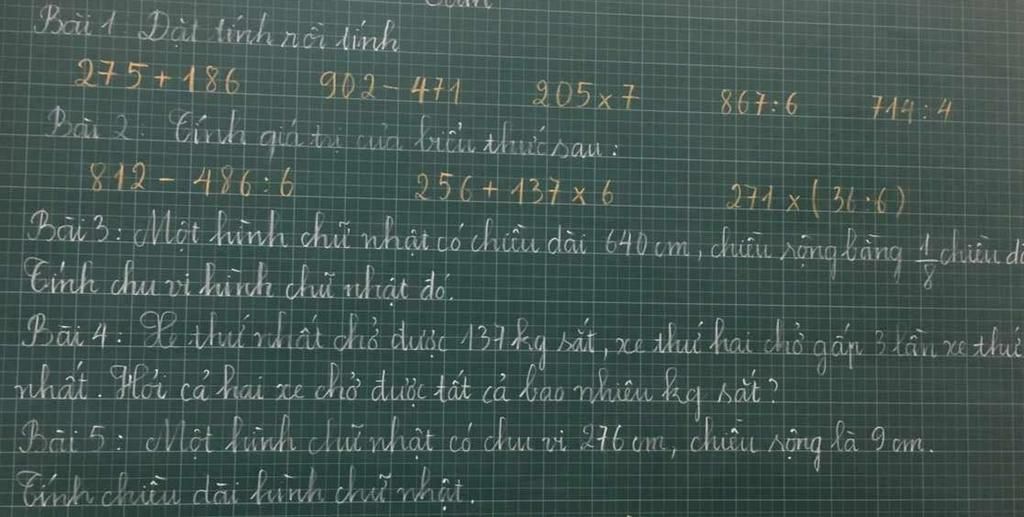 Bài 1 Đặt tính rồi tính
275 + 186 902 - 471 205 x 7 867 : 6 714 : 4
Bài 2. Tính giá trị của biểu thức sau :
812 - 486 : 6 256 + 137 x 6 271 x ( 36 : 6 )
Bài 3 : Một hình chữ nhật có chiều dài 640 cm, chiều rộng bằng 1/8 chiều dà
Tính chu vi hình chữ nhật đó.
Bài 4 : Xe thứ nhất chở được 137 kg sắt, xe thứ hai chở gấp 3 lần xe thứ
nhất. Hỏi cả hai xe chở được tất cả bao nhiêu kg sắt ?
Bài 5 : Một hình chữ nhật có chu vi 276 cm, chiều rộng là 9 cm.
Tính chiều dài hình chữ nhật.